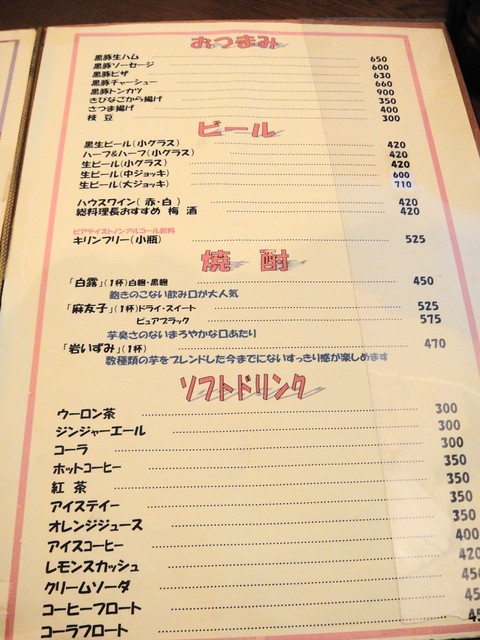 おつまみ
黒豚生ハム 650
黒豚ソーセージ 600
黒豚ピザ 630
黒豚チャーシュー 660
黒豚トンカツ 900
きびなごから揚げ 350
さつま揚げ 400
枝豆 300
ビール
黒生ビール(小グラス) 420
ハーフ&ハーフ(小グラス) 420
生ビール(小グラス) 420
生ビール(中ジョッキ) 600
生ビール(大ジョッキ) 710
ハウスワイン(赤・白) 420
総料理長おすすめ 梅酒 420
ビアテイストノンアルコール飲料
キリンフリー(小瓶) 525
焼酎
「白露」(1杯)白麹・黒麹 450
飽きのこない飲み口が大人気
「麻友子」(1杯)ドライ・スイート 525
ピュアブラック 575
芋臭さのないまろやかな口あたり
「岩いずみ」(1杯) 470
数種類の芋をブレンドした今までにないすっきり感が楽しめます
ソフトドリンク
ウーロン茶 300
ジンジャーエール 300
コーラ 300
ホットコーヒー 350
紅茶 350
アイスティー 350
オレンジジュース 350
アイスコーヒー 400
レモンスカッシュ 420
クリームソーダ
コーヒーフロート
コーラフロート